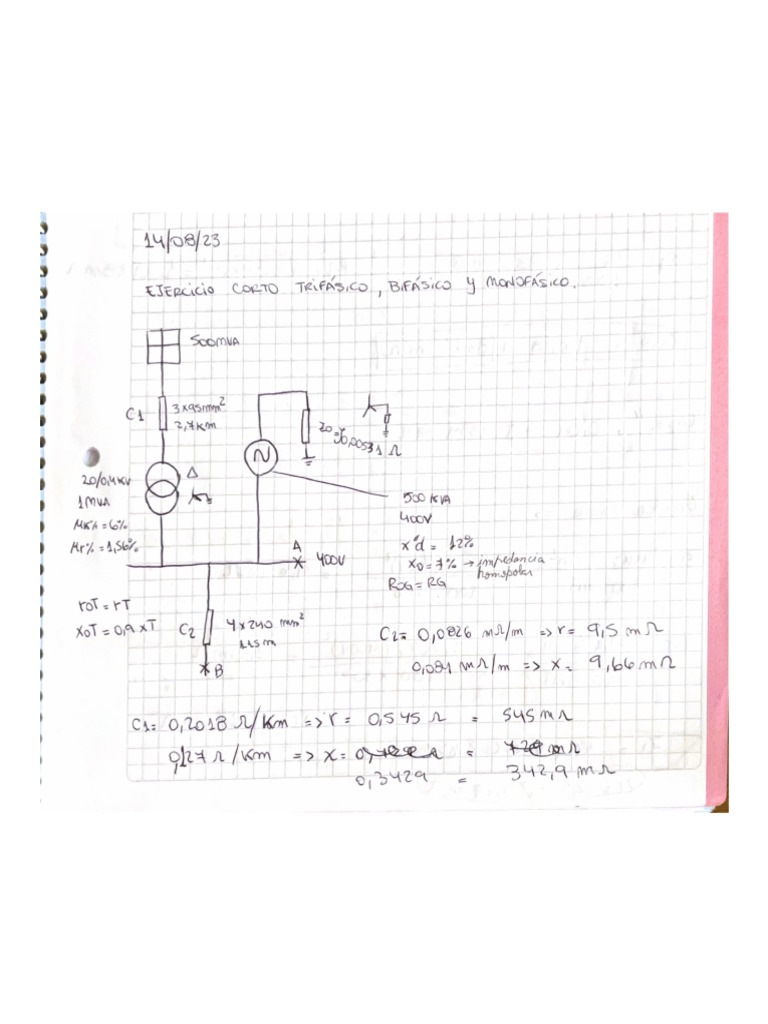 14/08/23
EJERCICIO CORTO TRIFÁSICO, BIFÁSICO y MONOFÁSICO.
500MVA
C1
3x95mm²
2,7Km
20/0,4KV
1MVA
Mk% = 6%
Mr% = 1,56%
Δ
N
20
0,00531 Ω
500 KVA
400V
x"d = 12%
x0 = 7% → impedancia
homopolar
ROG = RG
A
400V
roT = rT
XoT = 0,9 xT
C2
4x240 mm²
115m
B
C2 = 0,0826 mΩ/m => r = 9,5 mΩ
0,084 mΩ/m => x = 9,66 mΩ
C1 = 0,2018 Ω/Km => r = 0,545 Ω = 545 mΩ
0,127 Ω/Km => x = =  mΩ
0,3429 = 342,9 mΩ